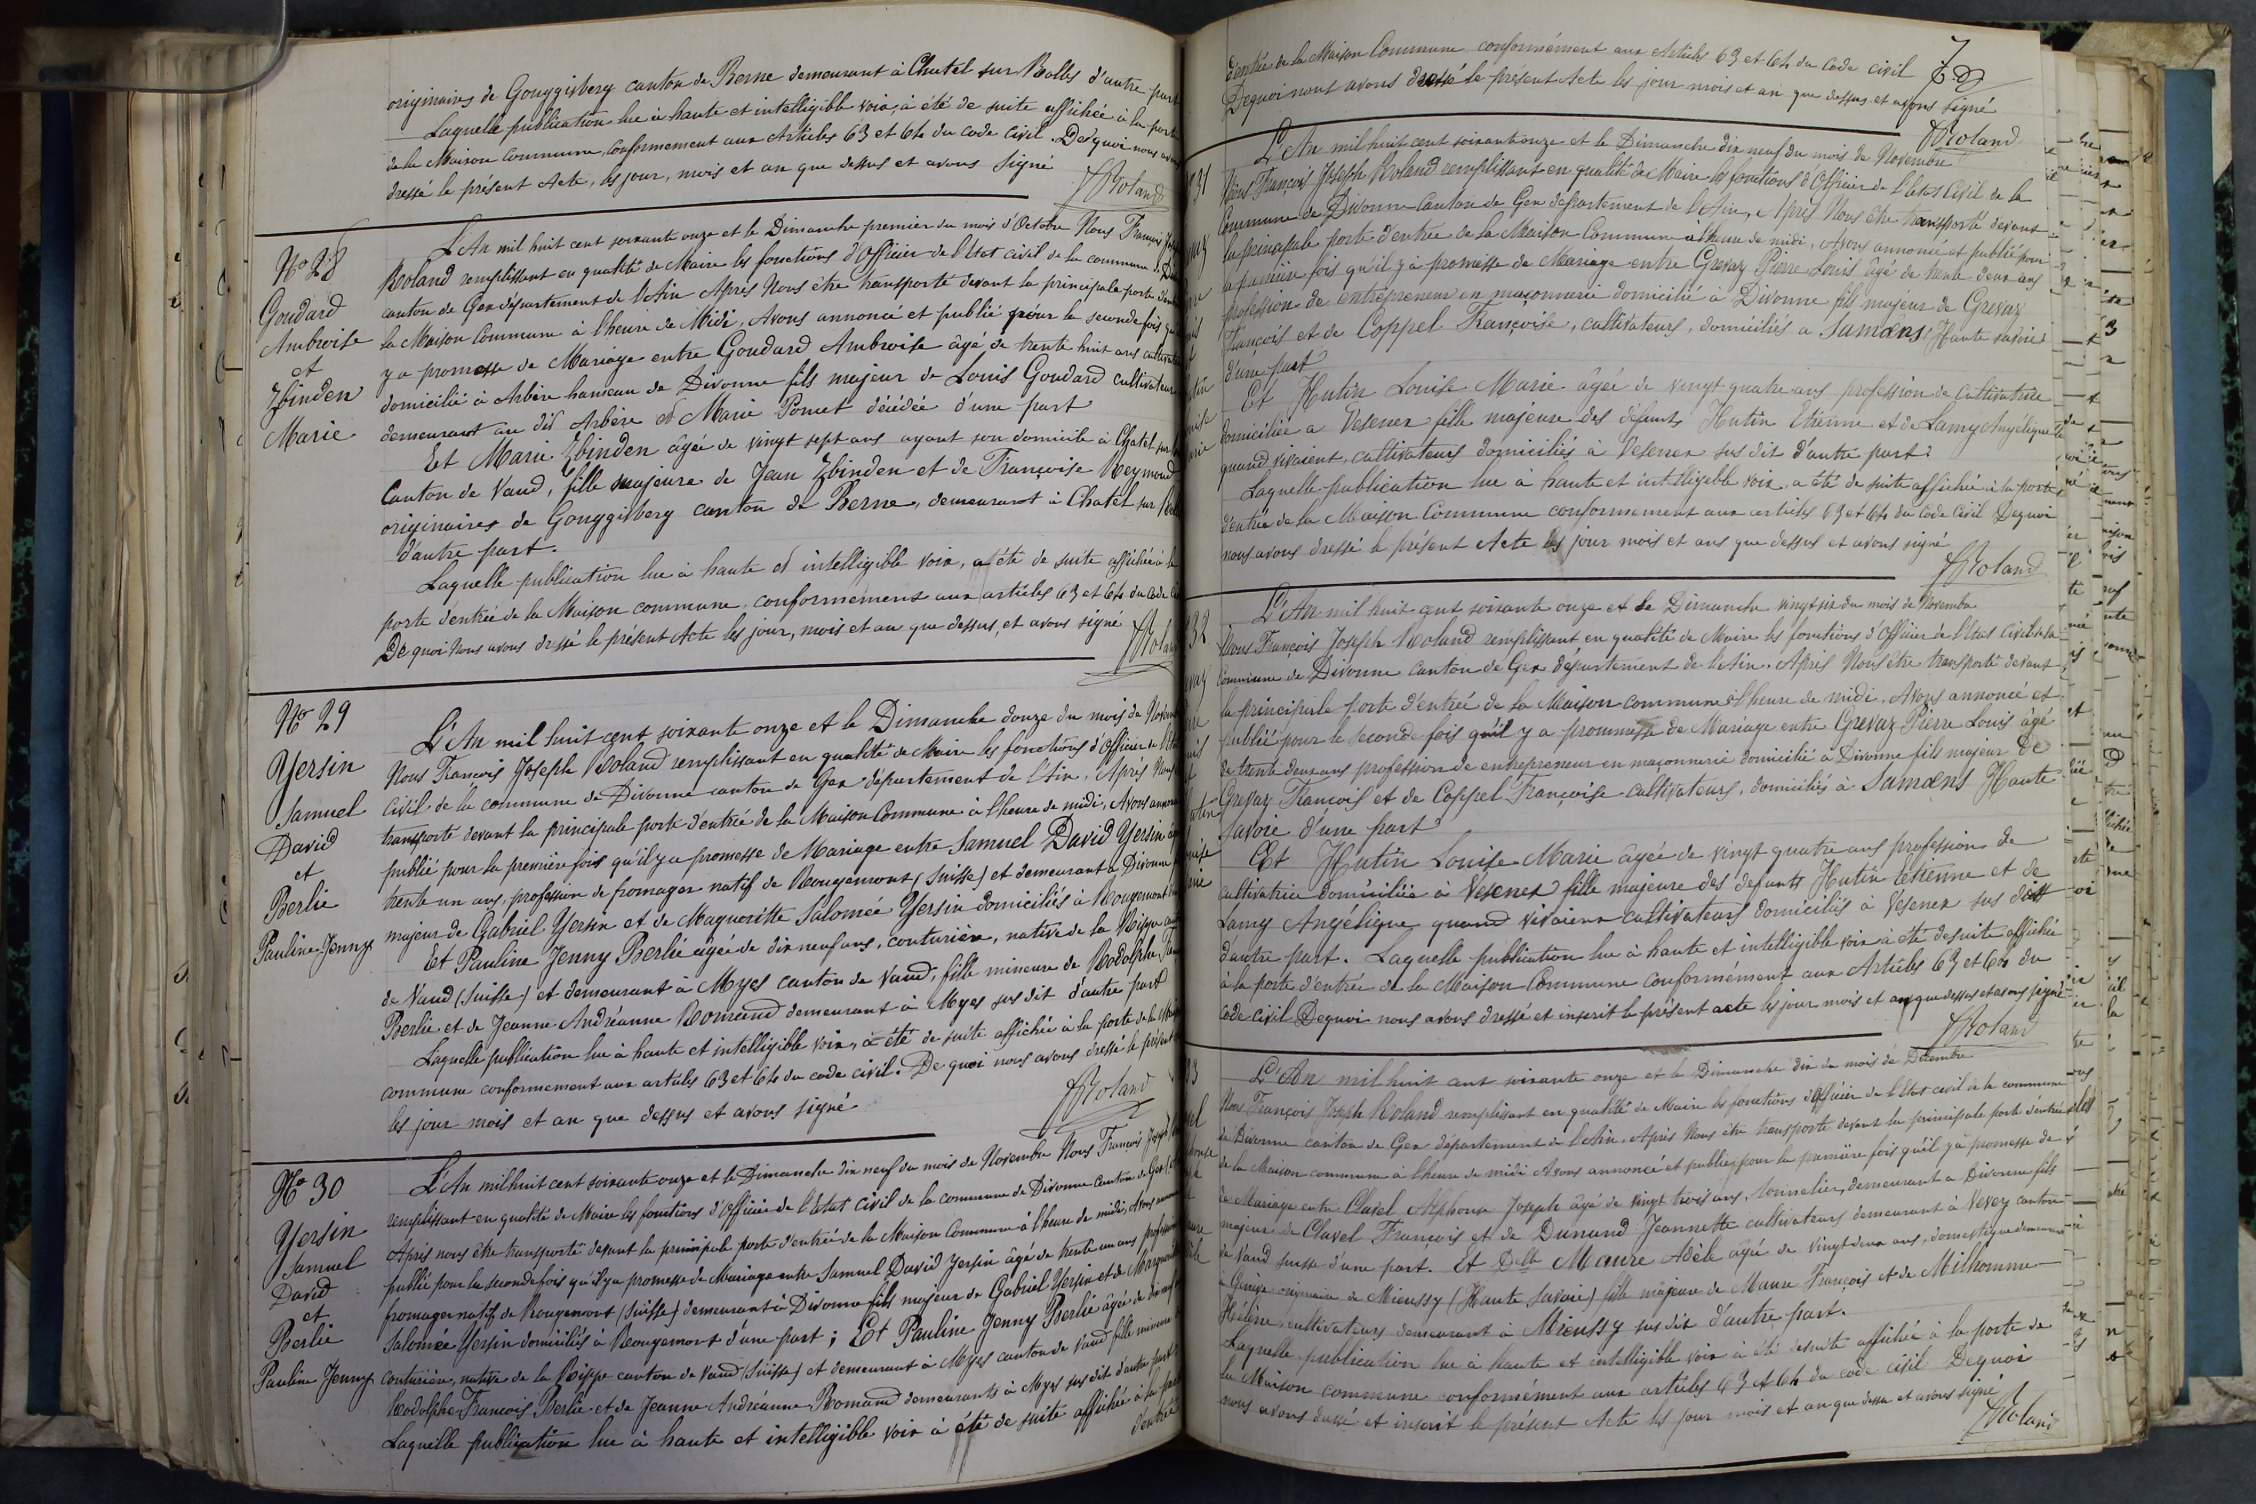 originaires de Gouggisberg canton de Berne demeurant à Chatel sur Rolles d'autre part
Laquelle publication lue à haute et intelligible voix, à été de suite affichée à la porte
de la Maison Commune, Conformement aux Articles 63 et 64 du Code Civil. De quoi nous avons
dressé le présent Acte, les jour, mois et an que dessus et avons signé
Roland
No 28
Goudard
Ambroise
et
Zbinden
Marie
L'An mil huit cent soixante onze et le Dimanche premier du mois d'Octobre Nous François
Roland remplissant en qualité de Maire les fonctions d'Officier de l'Etat civil de la commune de
canton de Gex département de l'Ain Après Nous être transporté devant la principale porte
la Maison Commune à l'heure de Midi, Avons annoncé et publié pour la seconde fois
y a promesse de Mariage entre Goudard Ambroise âgé de trente huit ans
domicilié à Arbère hameau de Divonne fils majeur de Louis Goudard cultivateur
demeurant au dit Arbère et Marie Pomet décédée d'une part
Et Marie Zbinden âgée de vingt sept ans ayant son domicile à Chatel sur
Canton de Vaud, fille majeure de Jean Zbinden et de Françoise Reymond
originaires de Gouggisberg canton de Berne, demeurant à Chatel sur
d'autre part.
Laquelle publication lue à haute et intelligible voix, a été de suite affichée à la
porte d'entrée de la Maison commune, conformement aux articles 63 et 64 du code
De quoi Nous avons dressé le présent Acte les jour, mois et an que dessus, et avons signé
No 29
Yersin
Samuel
David
et
Berlie
Pauline Jenny
L'An mil huit cent soixante onze et le Dimanche douze du mois de
Nous François Joseph Roland remplissant en qualité de Maire les fonctions d'Officier de
civil de la commune de Divonne canton de Gex département de l'Ain. Après Nous
transporté devant la principale porte d'entrée de la Maison Commune à l'heure de midi, Avons
publié pour la première fois qu'il y a promesse de Mariage entre Samuel David Yersin
trente un ans, profession de fromager natif de Rougemont (Suisse) et demeurant à Divonne
majeur de Gabriel Yersin et de Magueritte Salomée Yersin domiciliés à Rougemont
Et Pauline Jenny Berlie âgée de dix neuf ans, couturière, native de la Rippe
de Vaud (Suisse) et demeurant à Myes canton de Vaud, fille mineure de Rodolphe
Berlie et de Jeanne Andréanne Romand demeurant à Myes sus dit d'autre part
Laquelle publication lue à haute et intelligible voix, a été de suite affichée à la porte de la
commune conformement aux articles 63 et 64 du code civil. De quoi nous avons dressé le présent
les jour mois et an que dessus et avons signé
Roland
No 30
Yersin
Samuel
David
et
Berlie
Pauline Jenny
L'An mil huit cent soixante onze et le Dimanche dix neuf du mois de Novembre Nous François Joseph
remplissant en qualité de Maire les fonctions d'Officier de l'Etat civil de la commune de Divonne canton de Gex
Après nous être transporté devant la principale porte d'entrée de la Maison Commune à l'heure de midi, Avons
publié pour la seconde fois qu'il y a promesse de Mariage entre Samuel David Yersin âgé de trente un ans
fromager natif de Rougemont (Suisse) demeurant à Divonne fils majeur de Gabriel Yersin et de
Salomée Yersin domiciliés à Rougemont d'une part; Et Pauline Jenny Berlie âgée de
couturière, native de la Rippe canton de Vaud (Suisse) et demeurant à Myes canton de Vaud fille mineure
Rodolphe François Berlie et de Jeanne Andréanne Romand demeurants à Myes sus dit d'autre part
Laquelle publication lue à haute et intelligible voix à été de suite affichée à la
d'entrée
7
d'entrée de la Maison Commune conformément aux Articles 63 et 64 du Code civil
De quoi nous avons dressé le présent Acte les jour mois et an que dessus et avons signé
Roland
31
L'An mil huit cent soixante onze et le Dimanche dix neuf du mois de Novembre
Nous François Joseph Roland remplissant en qualité de Maire les fonctions d'Officier de l'etat civil de la
Commune de Divonne Canton de Gex département de l'Ain, Après Nous être transporté devant
la principale porte d'entrée de la Maison Commune à l'heure de midi, avons annoncé et publié pour
la première fois qu'il y à promesse de Mariage entre Grevaz Pierre Louis âgé de trente deux ans
profession de entrepreneur en maçonnerie domicilié à Divonne fils majeur de Grevaz
François et de Coppel Françoise, cultivateurs, domiciliés a Samoens Haute savoie
d'une part
Et Hutin Louise Marie âgée de vingt quatre ans profession de cultivatrice
domiciliée a Vesenex fille majeure des défunts Hutin Etienne et de Lamy Angélique
quand vivaient, cultivateurs domiciliés à Vesenex sus dit d'autre part
Laquelle publication lue à haute et intelligible voix, a été de suite affichée à la porte
d'entrée de la Maison Commune conformement aux articles 63 et 64 du Code Civil De quoi
nous avons dressé le présent Acte les jour mois et ans que dessus et avons signé
Roland
32
L'An mil huit cent soixante onze et le Dimanche vingt six du mois de Novembre
Nous François Joseph Roland remplissant en qualité de Maire les fonctions d'Officier de l'Etat Civil de la
Commune de Divonne canton de Gex département de l'Ain. Après Nous être transporté devant
la principale porte d'entrée de la Maison commune à l'heure de midi. Avons annoncé et
publié pour la seconde fois qu'il y a prommesse de Mariage entre Grevaz Pierre Louis âgé
de trente deux ans profession de entrepreneur en maçonnerie domicilié à Divonne fils majeur de
Grevaz François et de Coppel Françoise cultivateurs, domiciliés à Samoens Haute
Savoie d'une part
Et Hutin Louise Marie âgée de vingt quatre ans profession de
cultivatrice domiciliée à Vesenex fille majeure des defunts Hutin Etienne et de
Lamy Angélique quand vivaient cultivateurs domiciliés à Vesenex sus dit
d'autre part. Laquelle publication lue à haute et intelligible voix à été de suite affichée
à la porte d'entrée de la Maison Commune conformément aux Articles 63 et 64 du
Code Civil De quoi nous avons dressé et inscrit le présent acte les jour mois et an que dessus et avons signé
Roland
33
L'An mil huit cent soixante onze et le Dimanche dix du mois de Decembre
Nous François Joseph Roland remplissant en qualité de Maire les fonctions d'Officier de l'Etat civil de la commune
de Divonne canton de Gex département de l'Ain. Après Nous être transporté devant la principale porte d'entrée
de la Maison commune à l'heure de midi Avons annoncé et publié pour la première fois qu'il y à promesse de
de Mariage entre Clavel Alphonse Joseph âgé de vingt trois ans, tonnelier, demeurant a Divonne fils
majeur de Clavel François et de Dunand Jeannette cultivateurs demeurant à Vevey canton
de Vaud suisse d'une part. Et Dlle Maure Adèle âgée de vingt deux ans, domestique demeurant
à Genève originaire de Mieussy (Haute Savoie) fille majeure de Maure François et de Milhomme
Hélène, cultivateurs demeurant à Mieussy sus dit d'autre part.
Laquelle publication lue à haute et intelligible voix à été de suite affichée à la porte de
la Maison commune conformément aux articles 63 et 64 du code civil De quoi
nous avons dressé et inscrit le présent Acte les jour mois et an que dessus et avons signé
Roland